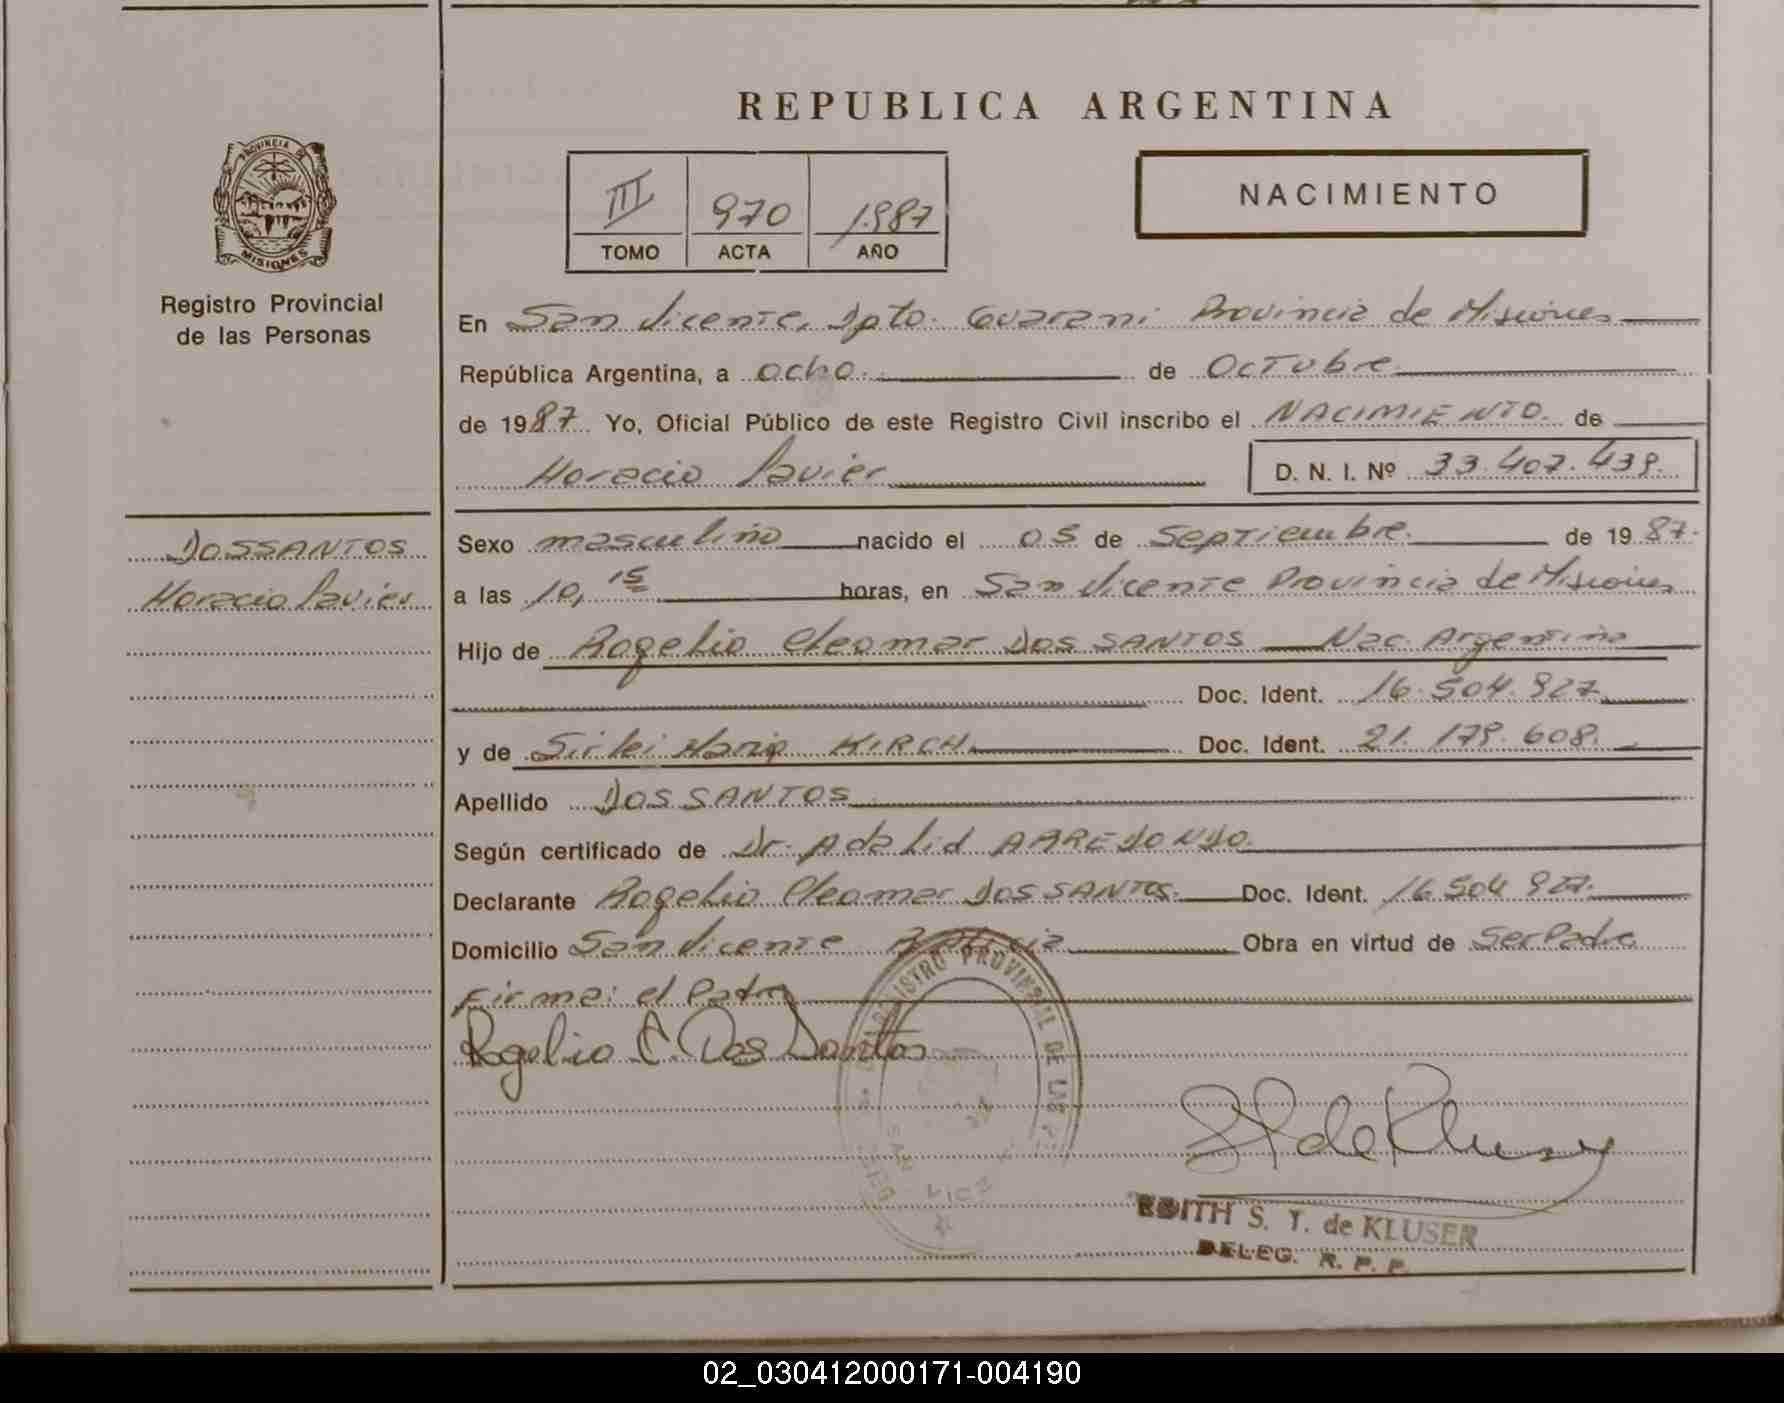 REPUBLICA ARGENTINA
PROVINCIA DE
MISIONES
Registro Provincial
de las Personas
III 970 1987
TOMO ACTA AÑO
NACIMIENTO
En San Vicente, Dpto. Guarani Provincia de Misiones
República Argentina, a ocho. de Octubre
de 1987. Yo, Oficial Público de este Registro Civil inscribo el NACIMIENTO. de
Horacio Javier D. N. I. Nº 33.407.439.
DOSSANTOS
Horacio Javier
Sexo masculino nacido el 05 de Septiembre. de 1987.
a las 10,15 horas, en San Vicente Provincia de Misiones
Hijo de Rogelio Cleomar DOS SANTOS Nac. Argentina
Doc. Ident. 16.504.927
y de Sirlei Maria KIRCH. Doc. Ident. 21.179.608.
Apellido DOS SANTOS
Según certificado de Dr. Adalid ARREDONDO.
Declarante Rogelio Cleomar DOS SANTOS. Doc. Ident. 16.504.927.
Domicilio San Vicente Obra en virtud de Ser Padre
Firma: el Padre
Rogelio C. Dos Santos
REGISTRO PROVINCIAL DE LAS
DELEG SAN VICE
S T de Kluser
EDITH S. T. de KLUSER
DELEG. R. P. P.
02_030412000171-004190